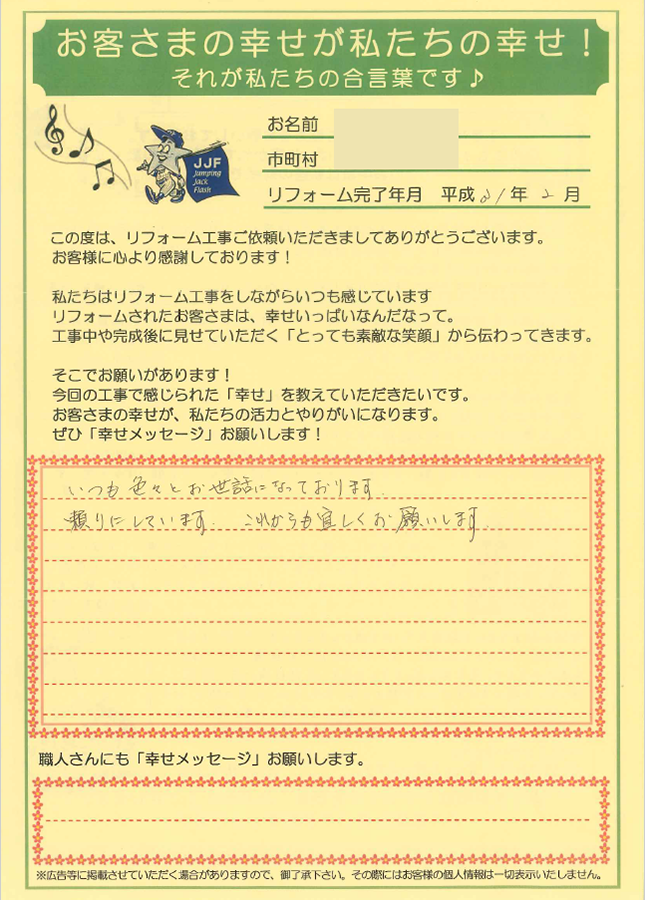 お客さまの幸せが私たちの幸せ!
それが私たちの合言葉です♪
お名前
市町村
JJF
Jumping
Jack
Flash
リフォーム完了年月 平成21年2月
この度は、リフォーム工事ご依頼いただきましてありがとうございます。
お客様に心より感謝しております!
私たちはリフォーム工事をしながらいつも感じています
リフォームされたお客さまは、幸せいっぱいなんだなって。
工事中や完成後に見せていただく「とっても素敵な笑顔」から伝わってきます。
そこでお願いがあります!
今回の工事で感じられた「幸せ」を教えていただきたいです。
お客さまの幸せが、私たちの活力とやりがいになります。
ぜひ「幸せメッセージ」お願いします!
いつも色々とお世話になっております.
頼りにしています. これからも宜しくお願いします.
職人さんにも「幸せメッセージ」お願いします。
※広告等に掲載させていただく場合がありますので、御了承下さい。その際にはお客様の個人情報は一切表示いたしません。